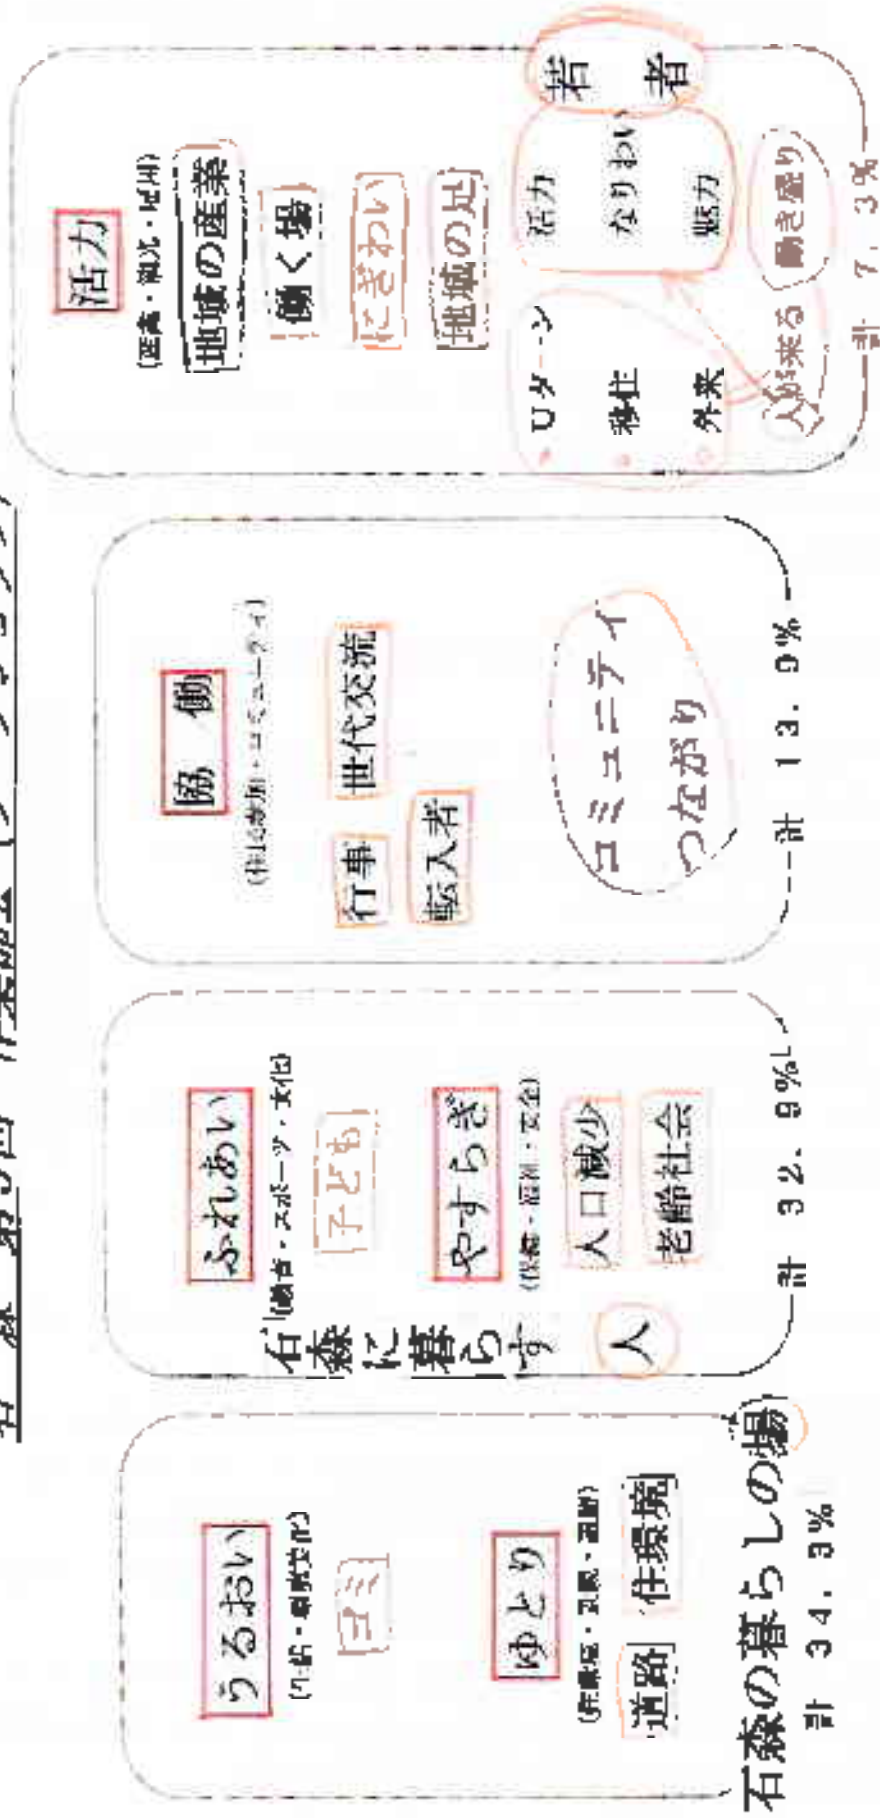 うるおい
ゴミ
ゆとり
道路
住環境
石森の暮らしの場
計 34.3%
ふれあい
(教育・スポーツ・文化)
子ども
やすらぎ
(保健・福祉・安全)
人口減少
老齢社会
石森に暮らす
人
計 32.9%
協 働
(住民参加・コミュニティ)
行事
世代交流
転入者
コミュニティ
つながり
計 13.9%
活力
地域の産業
働く場
にぎわい
地域の足
Uターン
移住
外来
活力
なりわい
魅力
若者
人が来る
働き盛り
計 7.3%